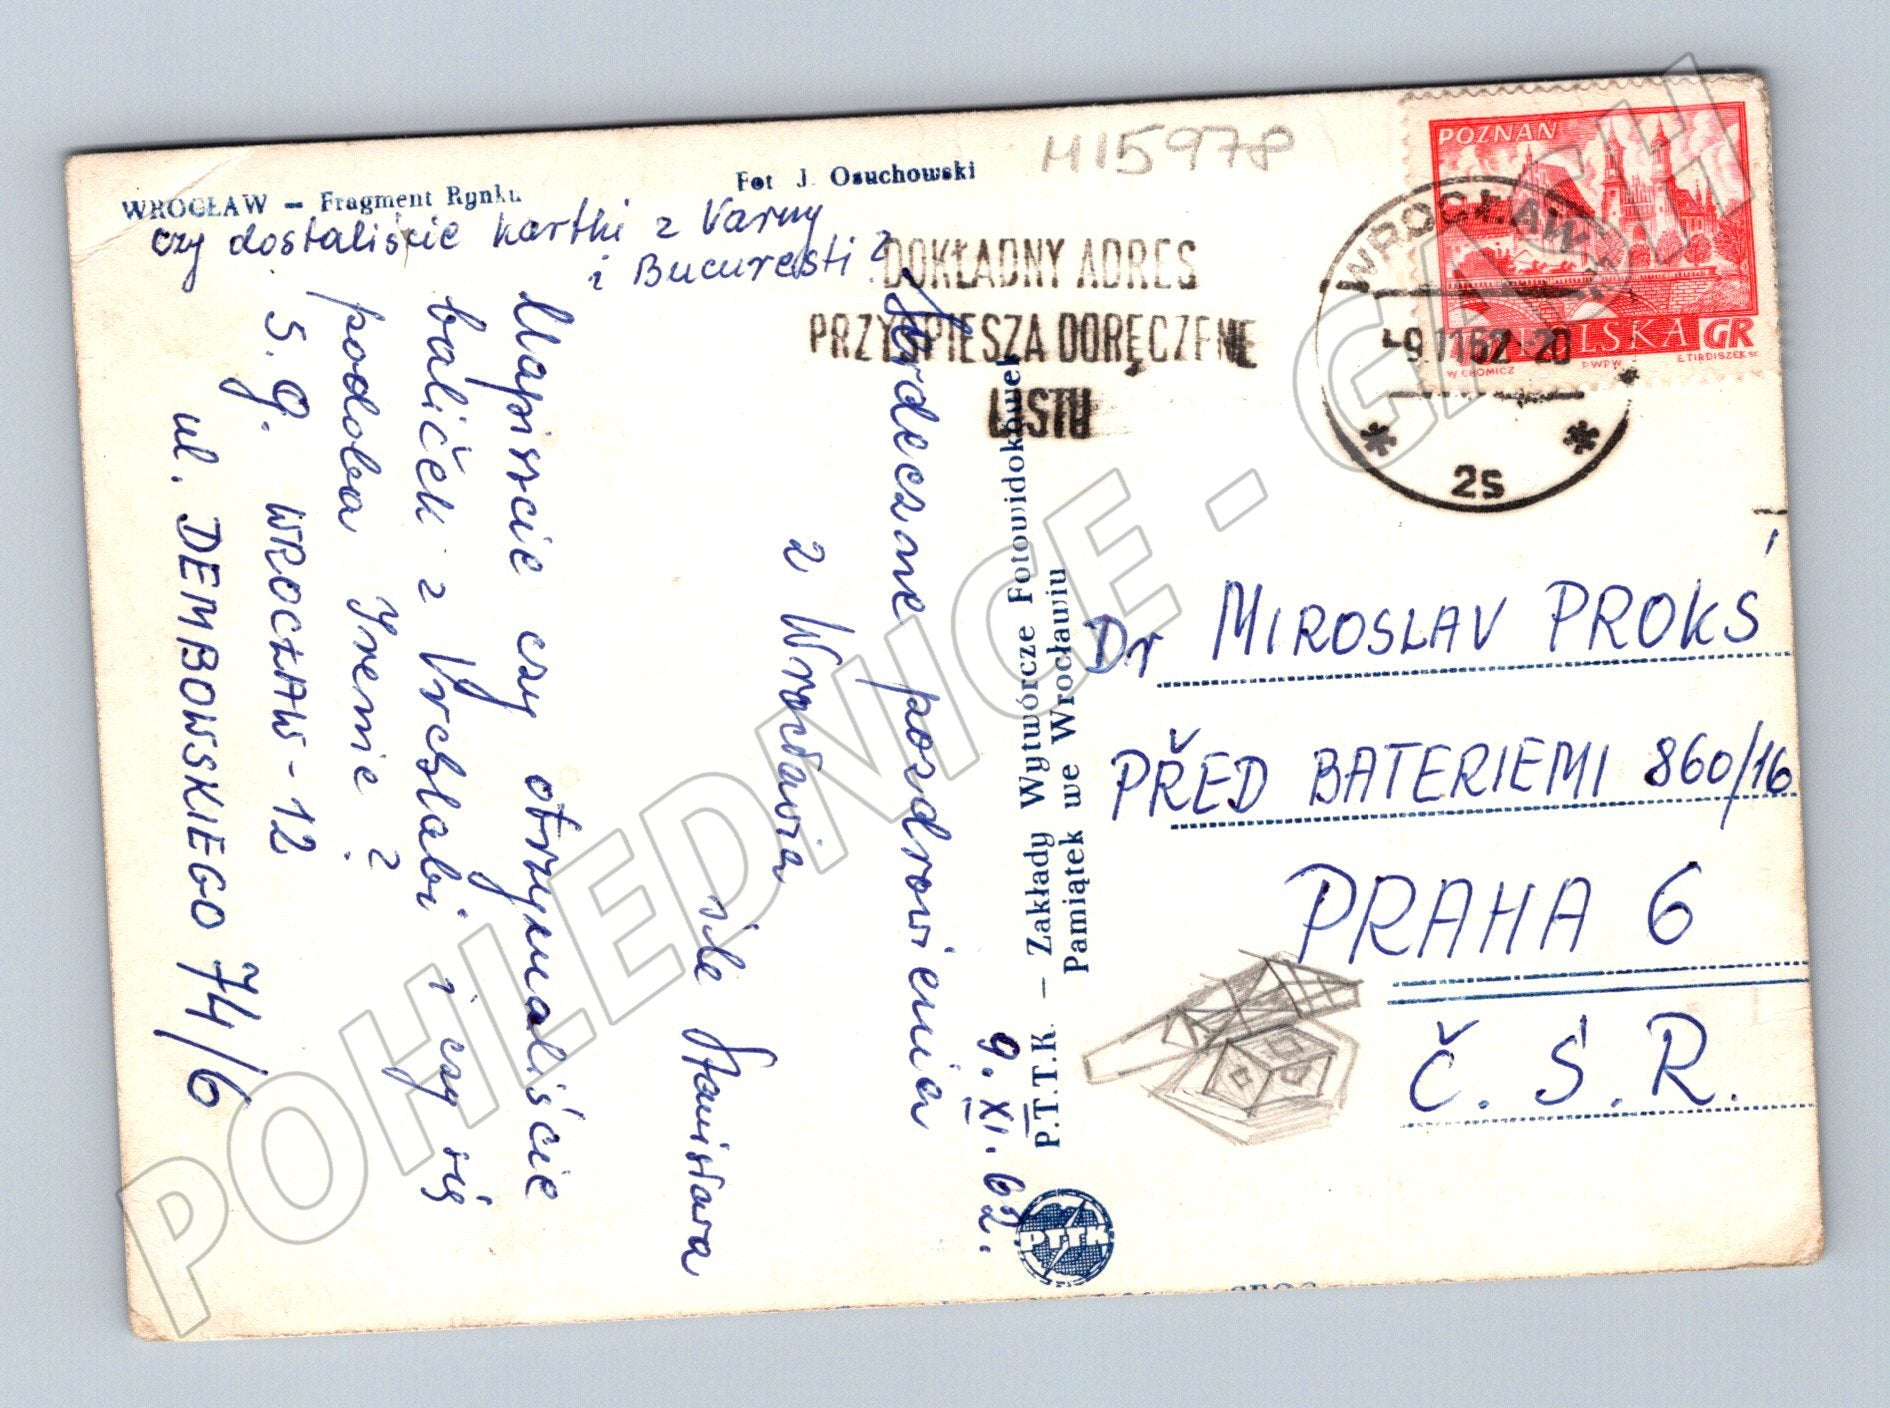 WROCŁAW — Fragment Rynku
Fot J. Osuchowski
H15978
czy dostaliście kartki z Varny
i Bucuresti?
Serdeczne pozdrowienia
z Wrocławia
śle Stanisława
9. XI. 62.
Napiszcie czy otrzymaliście
balíček z Vrchlabi i czy się
podoba Irenie?
S. G. WROCŁAW-12
ul. DEMBOWSKIEGO 74/6
P.T.T.K. — Zakłady Wytwórcze Fotowidokówek
Pamiątek we Wrocławiu
PTTK
DOKŁADNY ADRES
PRZYSPIESZA DORĘCZENIE
LISTU
WROCŁAW
-9.11.62-20
2s
POZNAŃ
POLSKA
GR
W. CHOMICZ
PWPW
E. TIRDISZEK SC.
Dr MIROSLAV PROKŠ
PŘED BATERIEMI 860/16
PRAHA 6
Č. S. R.
POHLEDNICE - GASH